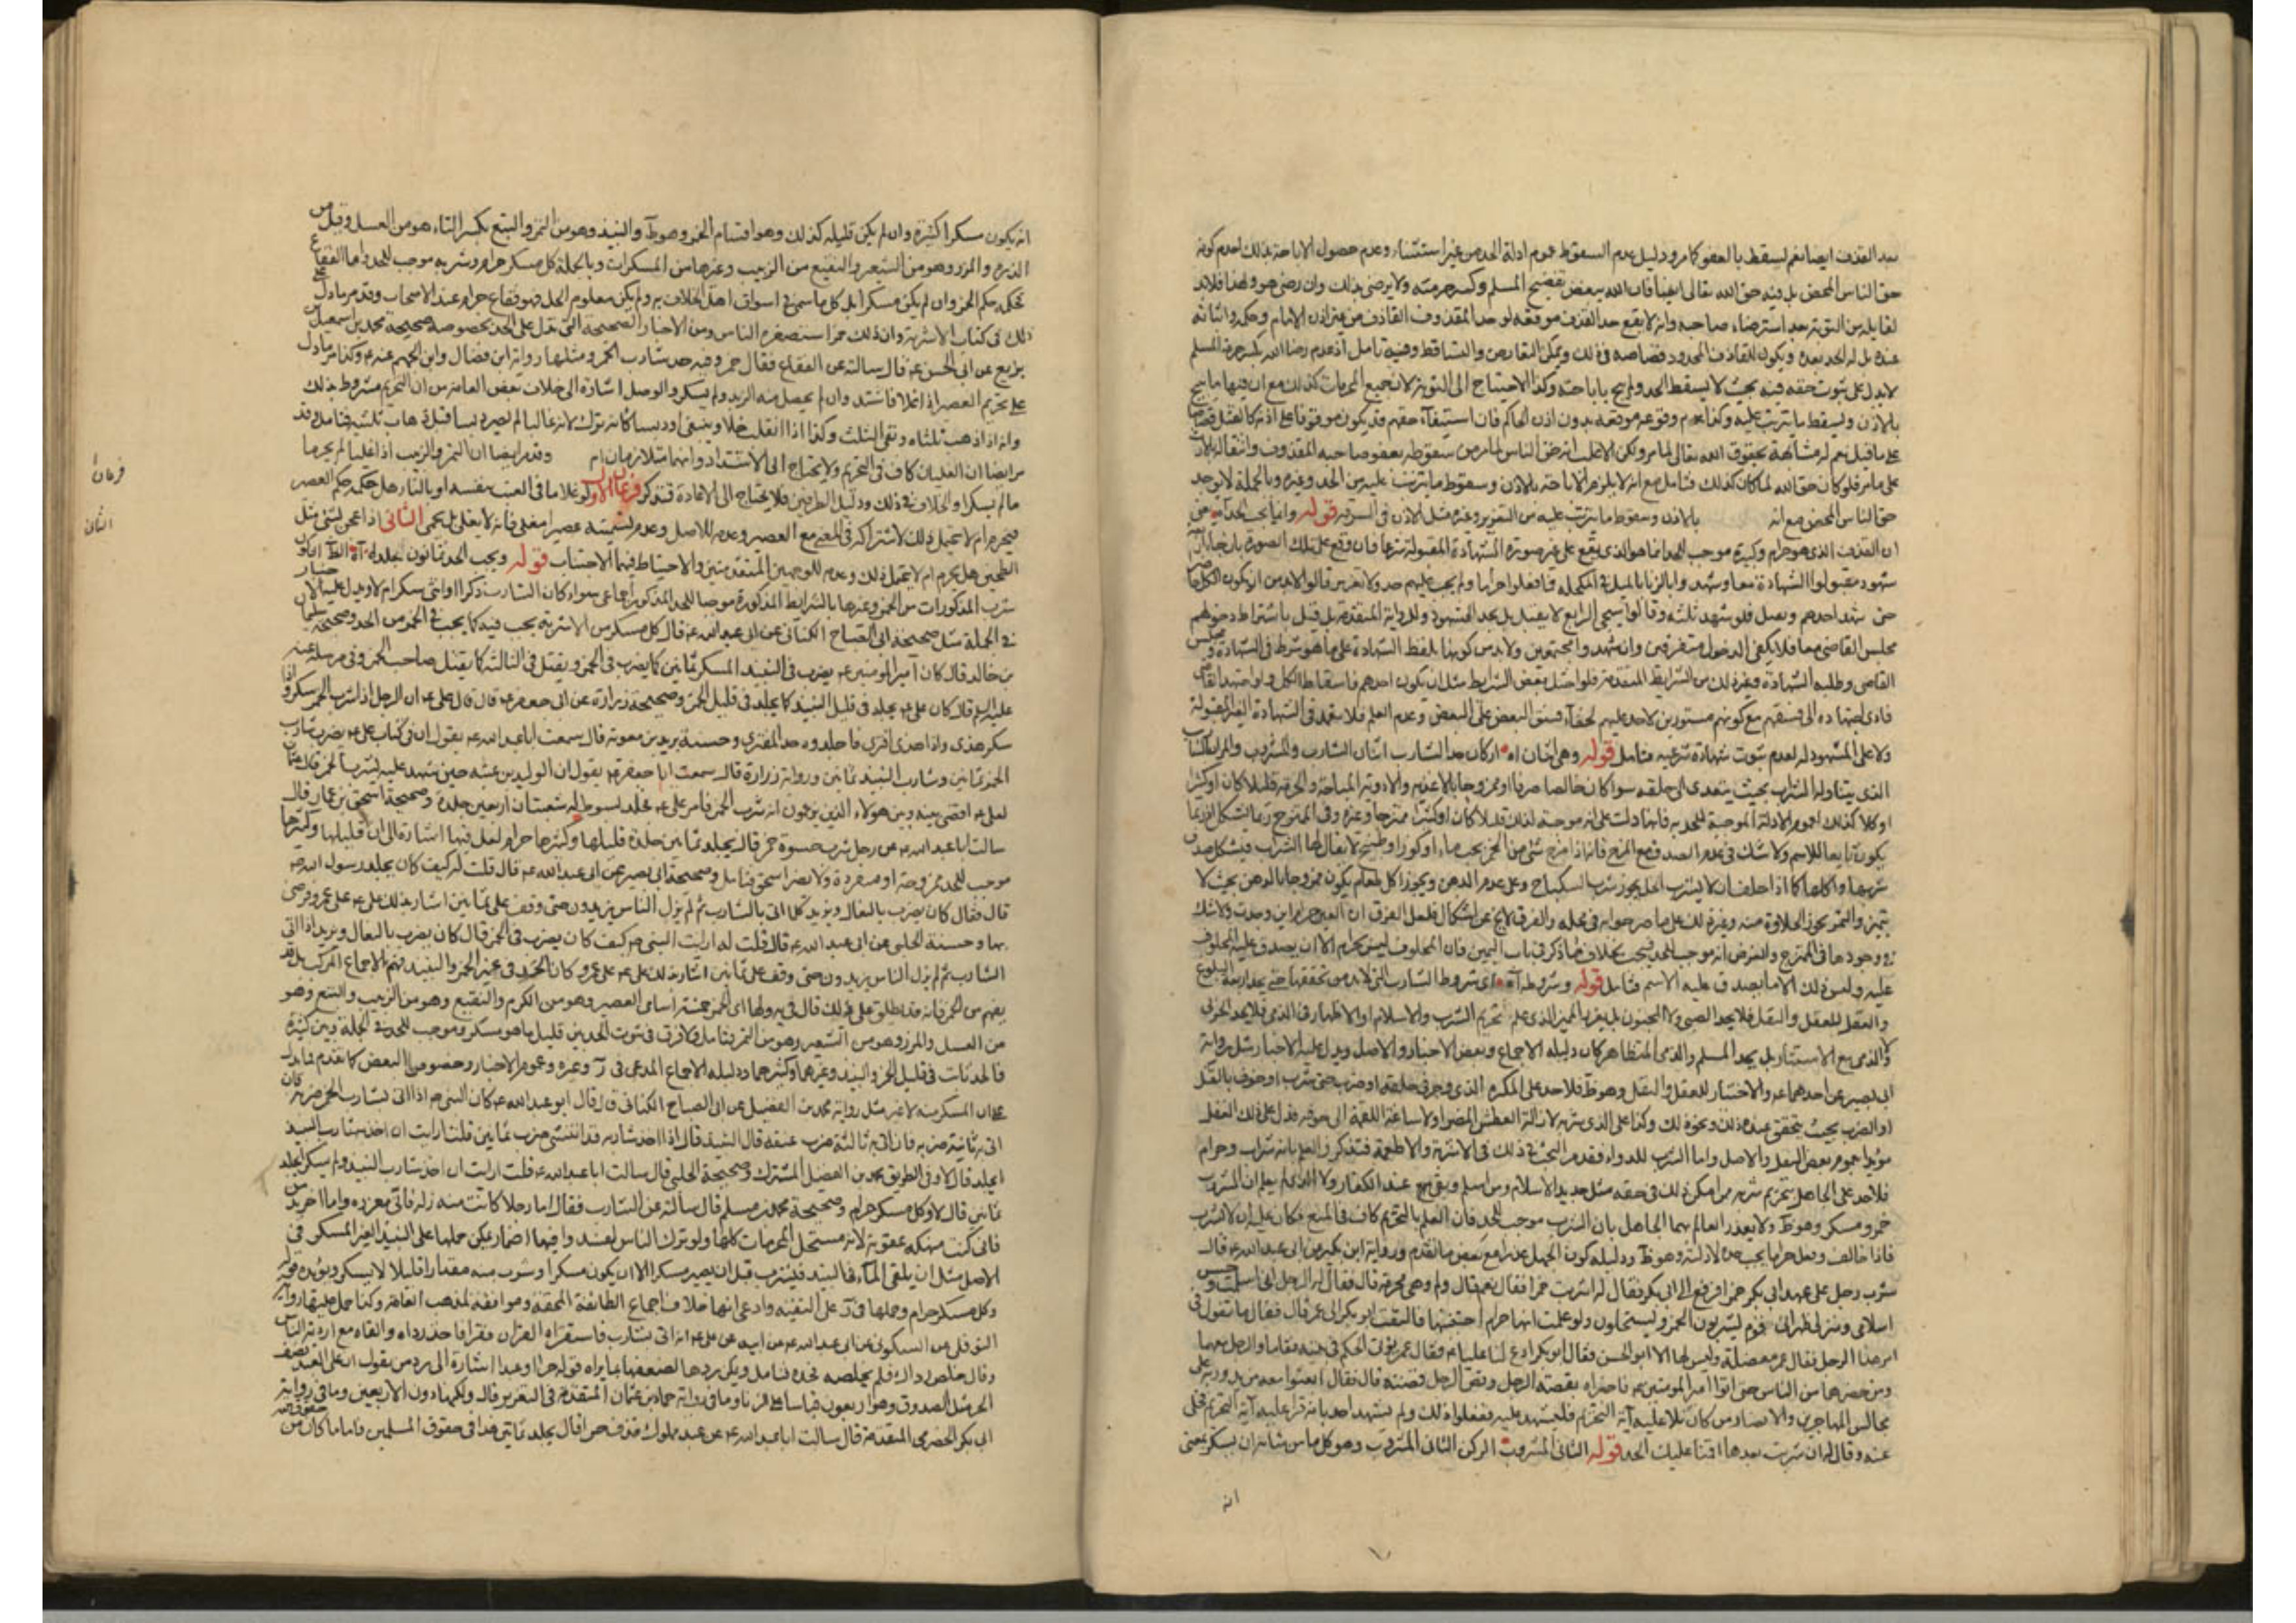 بعد القذف ايضا نعم يسقط بالعفو كما مر ودليل عدم السقوط عموم ادلة الحد من غير استثناء وعدم حصول الاباحة بذلك لعدم كونه
حق الناس المحض بل فيه حق الله تعالى ايضا فان الله يبغض تفضيح المسلم وكسر حرمته ولا يرضى بذلك وان رضى هو ولهذا فلابد
لقايله من التوبة بعد استرضاء صاحبه وانه لا يقع حد القذف موقعه لو حد المقذوف القاذف من غير اذن الامام وحكمه واثباته
عنده بل له الحد بعده ويكون للقاذف المحدود قصاصه في ذلك ويمكن التقاص والتساقط وفيه تامل اذ عدم رضا الله بكسر حرمة المسلم
لا يدل على ثبوت حقه فيه بحيث لا يسقط الحد ولم يبح باباحته وكذا الاحتياج الى التوبة لان جميع المحرمات كذلك مع ان فيها ما يبيح
بالاذن ويسقط ما يترتب عليه وكذا عدم وقوعه موقعه بدون اذن الحاكم فان استيفاء حقهم قد يكون موقوفا على اذنه كالقتل قصاصا
على ما قيل نعم له مشابهة بحقوق الله تعالى لما مر ولكن الاغلب انه حق الناس لما مر من سقوطه بعفو صاحبه المقذوف وانتقاله بالارث
على ما مر فلو كان حق الله لما كان كذلك فتامل مع انه لا يلزم الاباحة بالاذن وسقوط ما يترتب عليه من الحد وغيره وبالجملة لا يوجد
حق الناس المحض مع انه بالاذن وسقوط ما يترتب عليه من التعزير وغيره مثل الاذن في السرقة قوله وانما يجب الحد آه
ان القذف الذي هو حرام وكبيرة موجب للحد انما هو الذي يقع على غير صورة الشهادة المقبولة شرعا فان وقع على تلك الصورة
شهود مقبولوا الشهادة معا وشهدوا بالزنا بالميل في المكحلة فما فعلوا حراما ولم يجب عليهم حد ولا تعزير قالوا لابد من ان يكون الكل
حتى شهد احدهم وتعمل فلو شهد ثلثه وقالوا سيجي الرابع لا يقبل بل يحد الشهود وللرواية المتقدمة بل قيل باشتراط دخولهم
مجلس القاضي معا فلا يكفي الدخول متفرقين وان شهدوا مجتمعين ولابد من كونها بلفظ الشهادة على ما هو شرط في الشهادة
القاضي وطلبه الشهادة وغير ذلك من الشرايط المتقدمة فلو اختل بعض الشرايط مثل ان يكون احدهم فاسقا
فادى اجتهاده الى فسقهم مع كونهم مستورين لا حد عليهم لخفاء فسق البعض على البعض وعدم العلم فلا تعمد في الشهادة الغير المقبولة
ولا على المشهود له لعدم ثبوت شهادة شرعية فتامل قوله وهي اثنان آه اركان حد الشارب اثنان الشارب والمشروب والمراد بالشارب
الذي يتناول الشراب بحيث يتعدى الى حلقه سوا كان خالصا صرفا او ممزوجا بالاغذيه والادويه المباحة والمحرمة قليلا كان او كثيرا
او كلا كذلك لعموم الادلة الموجبة للحد به فانها دلت على انه موجبه لذلك قليلا كان او كثيرا ممتزجا وغيره وفي الممتزج ربما اشكل اذ ربما
يكون تابعا للاسم ولا شك في عدم الصدق مع المزج فانه اذا مزج شئ من الخمر بحب ماء او كوز او طبيخ لا يقال لها الشراب فيشكل صدق
شربها واكلها كما اذا حلف ان لا يشرب الخل يجوز شرب السكباج وعلى عدم الدهن ويجوز اكل طعام يكون ممزوجا بالدهن بحيث لا
يتميز والتمر يجوز الحلاوة منه وغير ذلك على ما صرحوا به في محله والفرق لا يخ عن اشكال فلعل الفرق ان العين حرام اين وجدت ولا شك
في وجودها في الممتزج والفرض انه موجب للحد فيجب بخلاف ما ذكر في باب اليمين فان المحلوف ليس بحرام الا ان يصدق عليه المحلوف
عليه وليس ذلك الا ما يصدق عليه الاسم فتامل قوله وشروطه آه اى شروط الشارب التي لابد من تحققها حتى يحد اربعة البلوغ
والعقل للعقل والنقل فلا يحد الصبى ولا المجنون بل يعزر المميز الذى علم تحريم الشرب والاسلام او الاظهار في الذمى فلا يحد الحربى
والذمى مع الاستتار بل يحد المسلم والذمى المتظاهر كان دليله الاجماع وبعض الاخبار والاصل ويدل عليه الاخبار مثل رواية
ابى بصير عن احدهما عه والاختيار للعقل والنقل وهو ظ فلا حد على المكره الذى وجر في حلقه او ضرب حتى شرب او خوف بالقتل
او الضرب بحيث يتحقق عنده ذلك ونحو ذلك وكذا على الذى شربه لازالة العطش المضر او لاساغة اللقمة الى جوفه فدل على ذلك العقل
مؤيدا بعموم بعض النقل والاصل واما الشرب للدواء فقدم البحث في ذلك في الاشربة والاطعمة فتذكر والعلم بانه شراب وحرام
فلا حد على الجاهل بتحريم شربه ممن امكن ذلك في حقه مثل جديد الاسلام ومن اسلم وبقى عند الكفار ولا الذى لم يعلم ان المشروب
خمر ومسكر وهو ظ ولا يعذر العالم بهما الجاهل بان الشرب موجب للحد فان العلم بالتحريم كاف في المنع فكان عليه ان لا يشرب
فاذا خالف وفعل حراما يجب حده لادلته وهو ظ ودليله كون الجهل عذرا مع بعض ما تقدم ورواية ابن بكير عن ابى عبدالله عه قال
شرب رجل على عهد ابى بكر خمرا فرفع الى ابى بكر فقال له اشربت خمرا فقال نعم قال ولم وهى محرمة قال فقال له الرجل انى اسلمت وحسن
اسلامى ومنزلى ظهرانى قوم يشربون الخمر ويستحلون ولو علمت انها حرام اجتنبتها فالتفت ابو بكر الى عمر قال فقال ما تقول في
امر هذا الرجل فقال عمر معضلة وليس لها الا ابو الحسن فقال ابو بكر ادع لنا عليا عه فقال عمر يؤتى الحكم في بيته فقاما والرجل معهما
ومن حضرهما من الناس حتى اتوا امير المؤمنين عه فاخبراه بقصته الرجل وقص الرجل قصته قال فقال ابعثوا معه من يدور به على
مجالس المهاجرين والانصار من كان تلا عليه آية التحريم فليشهد عليه ففعلوا ذلك ولم يشهد احد بانه قرا عليه آية التحريم فخلى
عنه وقال له ان شربت بعدها اقمنا عليك الحد قوله الثانى المشروب الركن الثانى المشروب وهو كل ما من شانه ان يسكر بمعنى
انه
انه يكون مسكرا كثيره وان لم يكن قليله كذلك وهو اقسام الخمر وهو ظ والنبيذ وهو من التمر والبتع بكسر التاء هو من العسل وقيل من
الذره والمزر وهو من الشعير والنقيع من الزبيب وغيرها من المسكرات وبالجملة كل مسكر حرام وشربه موجب للحد واما الفقاع
فحكمه حكم الخمر وان لم يكن مسكرا بل كل ما سمى في اسواق اهل الخلاف به ولم يكن معلوم الحل فهو فقاع حرام عند الاصحاب وقد مر ما دل على
ذلك في كتاب الاشربة وان ذلك خمرا ستصغره الناس ومن الاخبار الصحيحة التى تدل على الحد بخصوصه صحيحة محمد بن اسمعيل بن
بزيع عن ابى الحسن عه قال سالته عن الفقاع فقال خمر وفيه حد شارب الخمر ومثلها رواية ابن فضال وابن الجهم عنه عه وكذا مر ما دل
على تحريم العصير اذا غلا فاشتد وان لم يحصل منه الزبد ولم يسكر والوصل اشارة الى خلاف بعض العامه من ان التحريم مشروط بذلك
وانه اذا ذهب ثلثاه وبقى الثلث وكذا اذا انقلب خلا وينبغى او دبسا كانه ترك لانه غالبا لم يصر دبسا قبل ذهاب ثلثيه فتامل وقد
مر ايضا ان الغليان كاف في التحريم ولا يحتاج الى الاشتداد وانهما متلازمان ام وقد مر ايضا ان التمر والزبيب اذا غليا لم يحرما
ما لم يسكرا والخلاف في ذلك ودليل الطرفين فلا يحتاج الى الاعادة فتذكر فرعان الاول لو غلا ما في العنب بنفسه او بالنار هل حكمه حكم العصير
فيحرم ام لا يحتمل ذلك لاشتراكه في المعنى مع العصير وعدمه للاصل وعدم تسميته عصيرا مغلى فانه لا يغلى بل يحمى الثانى اذا عجن بشئ مثل
الطحين هل يحرم ام لا يحتمل ذلك وعدمه للوجهين المتقدمتين والاحتياط فيهما الاجتناب قوله ويجب الحد ثمانون جلدة آه
شرب المذكورات من الخمر وغيرها بالشرايط المذكورة موجبا للحد المذكور اجماعى سواء كان الشارب ذكرا او انثى سكر ام لا ويدل عليه الاخبار
في الجملة مثل صحيحة ابى الصباح الكنانى عن ابى عبدالله عه قال كل مسكر من الاشربه يجب فيه كما يجب في الخمر من الحد وصحيحة سليمان
بن خالد قال كان امير المؤمنين عه يضرب في النبيذ المسكر ثمانين كما يضرب في الخمر ويقتل في الثالثة كما يقتل صاحب الخمر وفي مرسلة عنه
عليه السلام قال كان على عه يجلد في قليل النبيذ كما يجلد في قليل الخمر وصحيحة زرارة عن ابى جعفر عه قال قال على عه ان الرجل اذا شرب الخمر سكر واذا
سكر هذى واذا هذى افترى فاجلدوه حد المفترى وحسنة بريد بن معويه قال سمعت ابا عبدالله عه يقول ان في كتاب على عه يضرب شارب
الخمر ثمانين وشارب النبيذ ثمانين ورواية زرارة قال سمعت ابا جعفر عه يقول ان الوليد بن عقبه حين شهد عليه بشرب الخمر قال عثمان
لعلى عه اقض بينه وبين هولاء الذين يزعمون انه شرب الخمر فامر على عه فجلد بسوط له شعبتان اربعين جلدة وصحيحة اسحق بن عمار قال
سالت ابا عبدالله عه عن رجل شرب حسوة خمر قال يجلد ثمانين جلدة قليلها وكثيرها حرام لعل فيها اشارة الى ان قليلها وكثيرها
موجب للحد ممزوجة او منفردة ولا يضر اسحق فتامل وصحيحة ابى بصير عن ابى عبدالله عه قال قلت له كيف كان يجلد رسول الله صه
قال فقال كان يضرب بالنعال ويزيد كلما اتى بالشارب ثم لم يزل الناس يزيدون حتى وقف على ثمانين اشار بذلك على عه على عمر فرضى
بها وحسنة الحلبى عن ابى عبدالله عه قال قلت له ارايت النبى صه كيف كان يضرب في الخمر قال كان يضرب بالنعال ويزيد اذا اتى
الشارب ثم لم يزل الناس يزيدون حتى وقف على ثمانين اشار بذلك على عه على عمر وكان الحد في غير الخمر والنبيذ فهم بالاجماع المركب بل قد
يفهم من الخمر فانه قد اطلق على ذلك قال في يه ولها اى الخمر خمسة اسامى العصير وهو من الكرم والنقيع وهو من الزبيب والبتع وهو
من العسل والمزر وهو من الشعير وهو من التمر فتامل ولا فرق في ثبوت الحد بين قليل ما هو مسكر وموجب للحد في الجملة وبين كثيره
على ان المسكر منه لا غير مثل رواية محمد بن الفضيل عن ابى الصباح الكنانى قال قال ابو عبدالله عه كان النبى صه اذا اتى بشارب الخمر ضربه فان
اتى به ثانية ضربه فان اتى به ثالثة ضرب عنقه قال النبيذ قال اذا اخذ شاربه قد انتشى ضرب ثمانين قلت ارايت ان اخذ شارب النبيذ
ايجلد قال لا وفي الطريق محمد بن الفضيل المشترك وصحيحة الحلبى قال سالت ابا عبدالله عه قلت ارايت ان اخذ شارب النبيذ ولم يسكر ايجلد
ثمانين قال لا وكل مسكر حرام وصحيحة محمد بن مسلم قال سالته عن الشارب فقال اما رجلا كانت منه زلة فانى معزره واما اخر يدمن
فانى كنت منهكه عقوبة لانه مستحل المحرمات كلها ولو ترك الناس لفسدوا فيها اضمار يمكن حملها على النبيذ الغير المسكر في
الاصل مثل ان يلقى الماء في النبيذ فيشرب قبل ان يصير مسكرا الا ان يكون مسكرا وشرب منه مقدارا قليلا لا يسكر ويؤيده قوله
وكل مسكر حرام وحملها في ر على التقية وادعى انها خلاف اجماع الطائفة المحقة وموافقة لمذهب العامة وكذا حمل عليها رواية
النوفلى عن السكونى عن ابى عبدالله عه عن ابيه عن على عه انه اتى بشارب فاستقراه القران فقرا فاخذ رداه والقاه مع اردية الناس
وقال خلص رداك فلم يخلصه فحده فتامل ويمكن ردها لضعفها بما يراه قوله حرا او عبدا اشارة الى رد من يقول ان على العبد نصف
الحر مثل الصدوق وهو اربعون قياسا على الزنا وما في رواية حماد بن عثمان المتقدمة في التعزير قال ولكنها دون الاربعين وما في رواية
ابى بكر الحضرمى المتقدمة قال سالت ابا عبدالله عه عن عبد مملوك قذف حرا قال يجلد ثمانين هذا في حقوق المسلمين فاما ما كان من حقوق الله
فرعان ا
الثانى